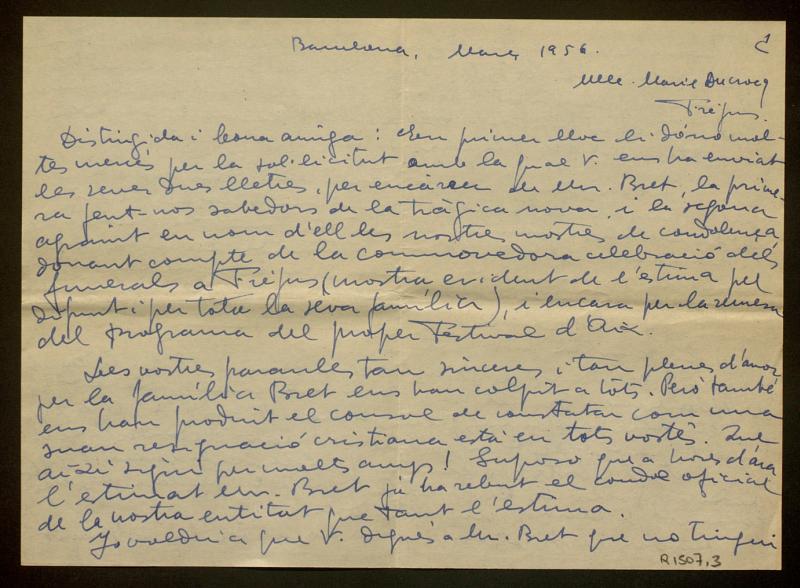 Barcelona, Març 1956.
Mlle. Marie Ducrocq
Fréjus.
Distingida i bona amiga: En primer lloc li dóno mol-
tes mercès per la sol·licitut amb la qual V. ens ha enviat
les seves dues lletres, per encàrrec de Mr. Bret, la prime-
ra fent-nos sabedors de la tràgica nova, i la segona
agraint en nom d'ell les nostres mostres de condolença
donant compte de la commovedora celebració dels
funerals a Fréjus (mostra evident de l'estima pel
difunt i per tota la seva família), i encara per la remesa
del programa del proper Festival d'Aix.
Les vostres paraules tan sinceres i tan plenes d'amor
per la família Bret ens han colpit a tots. Però també
ens han produit el consol de constatar com una
gran resignació cristiana està en tots vostès. Que
aixi sigui per molts anys! Suposo que a hores d'ara
l'estimat Mr. Bret ja ha rebut el condol oficial
de la nostra entitat que tant l'estima.
Jo voldria que V. digués a Mr. Bret que no tingui
R.1507,3